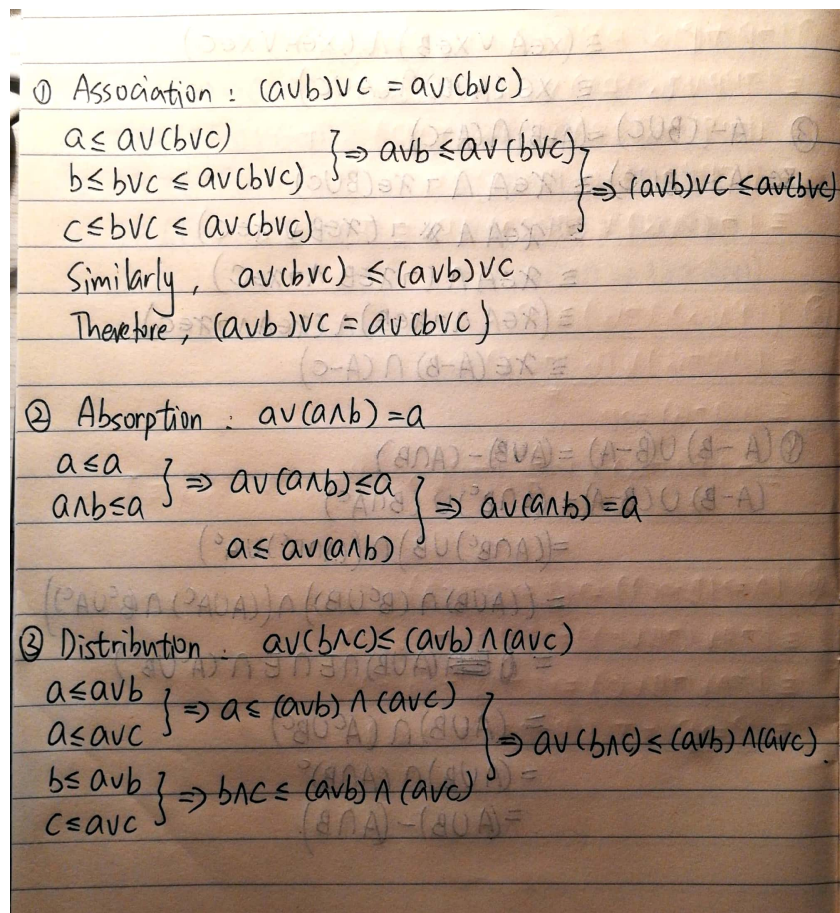 ① Association : (a∨b)∨c = a∨(b∨c)
a ≤ a∨(b∨c)
b ≤ b∨c ≤ a∨(b∨c)
} ⇒ a∨b ≤ a∨(b∨c)
c ≤ b∨c ≤ a∨(b∨c)
} ⇒ (a∨b)∨c ≤ a∨(b∨c)
Similarly, a∨(b∨c) ≤ (a∨b)∨c
Therefore, (a∨b)∨c = a∨(b∨c)
② Absorption : a∨(a∧b) = a
a ≤ a
a∧b ≤ a
} ⇒ a∨(a∧b) ≤ a
a ≤ a∨(a∧b)
} ⇒ a∨(a∧b) = a
③ Distribution : a∨(b∧c) ≤ (a∨b)∧(a∨c)
a ≤ a∨b
a ≤ a∨c
} ⇒ a ≤ (a∨b)∧(a∨c)
b ≤ a∨b
c ≤ a∨c
} ⇒ b∧c ≤ (a∨b)∧(a∨c)
} ⇒ a∨(b∧c) ≤ (a∨b)∧(a∨c).